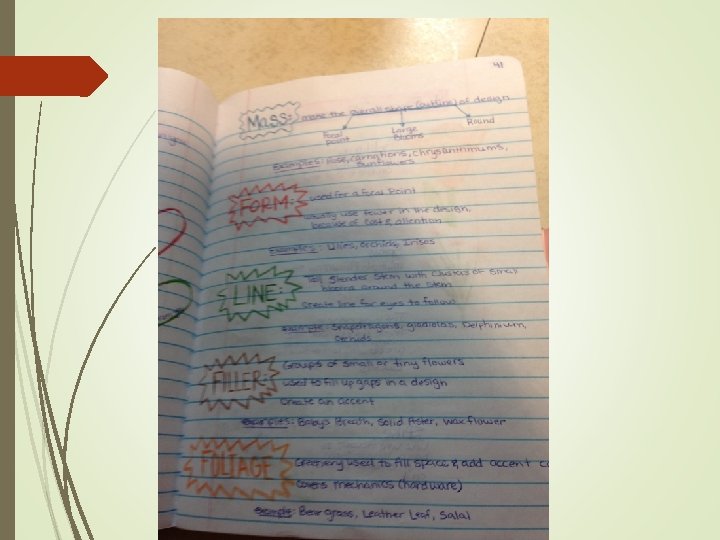 41
MASS: make the overall shape (outline) of design
Focal point
Large Blooms
Round
Examples: Rose, carnations, chrysanthmums,
sunflowers
FORM: used for a focal point
usually use fewer in the design,
because of cost & attention
Examples: Lilies, orchids, Irises
LINE: Tall slender stem with clusters of small
blooms around the stem
Create line for eyes to follow
Example: Snapdragons, gladiolas, Delphinium,
Orchids
FILLER: Groups of small or tiny flowers
used to fill up gaps in a design
Create an accent
Examples: Babys Breath, Solid Aster, wax flower
FOLIAGE Greenery used to fill space & add accent
Covers mechanics (hardware)
Example: Bear grass, Leather Leaf, Salal